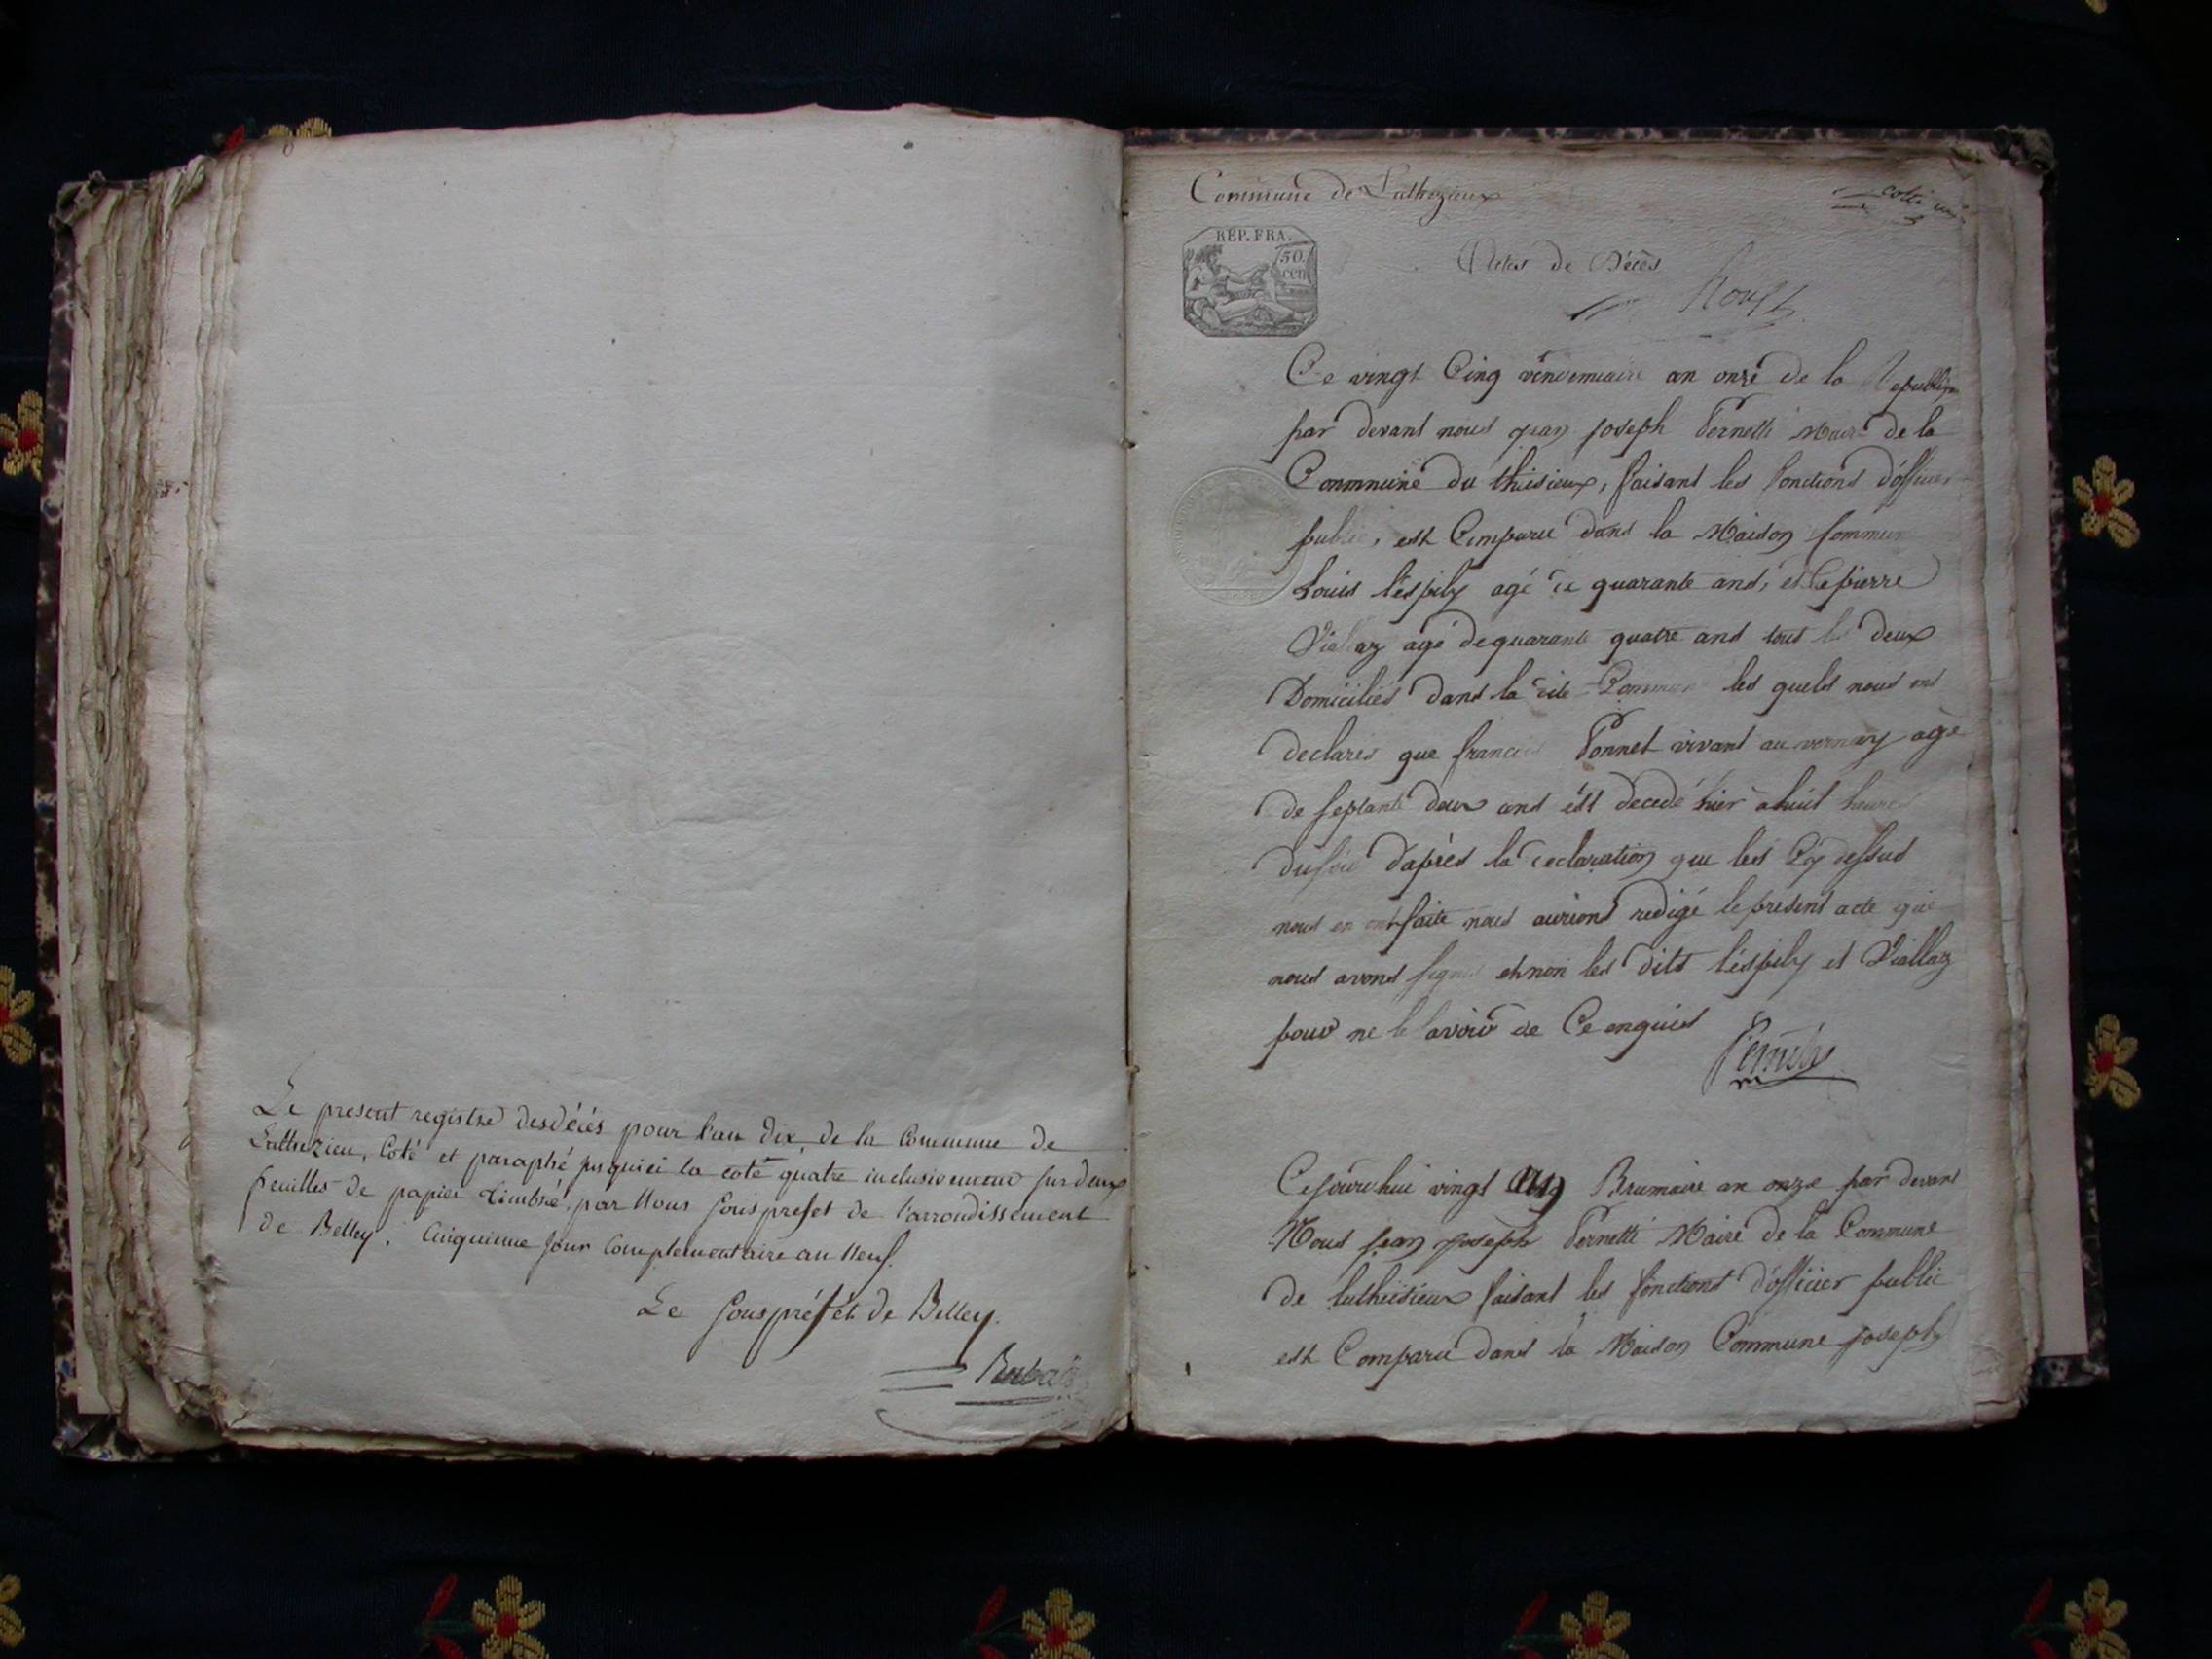 Le present registre des décés pour l'an dix, de la Commune de
Luthezieu, Coté et paraphé jusqu'ici la cote quatre inclusivement sur deux
feuilles de papier timbré, par Nous Souspréfet de l'arrondissement
de Belley. Cinquieme jour Complementaire an neuf.
Le Souspréfet de Belley.
Commune de Luthezieux
cotté un
RÉP. FRA.
50
cen
Actes de Décès
Ce vingt Cinq vendemiaire an onze de la Republique
par devant nous jean joseph Pernetti Maire de la
Commune du thisieux, faisant les fonctions d'officier
public, est Comparu dans la Maison Commune
Louis l'éspily agé de quarante ans, et le pierre
Viallaz agé de quarante quatre ans tous les deux
Domiciliés dans la dite Commune les quels nous ont
declarés que francois Ponnet vivant au vernay agé
de septante deux ans ést decedé hier a huit heures
du soir d'après la declaration que les Cy dessus
nous en ont faite nous aurions redigé le présent acte que
nous avons signés et non les dits l'éspily et Viallaz
pour ne le savoir de Ce enquis
Cejourd'hui vingt Brumaire an onze par devant
Nous jean joseph Pernetti Maire de la Commune
de luthesieux faisant les fonctions d'officier public
est Comparu dans la Maison Commune joseph